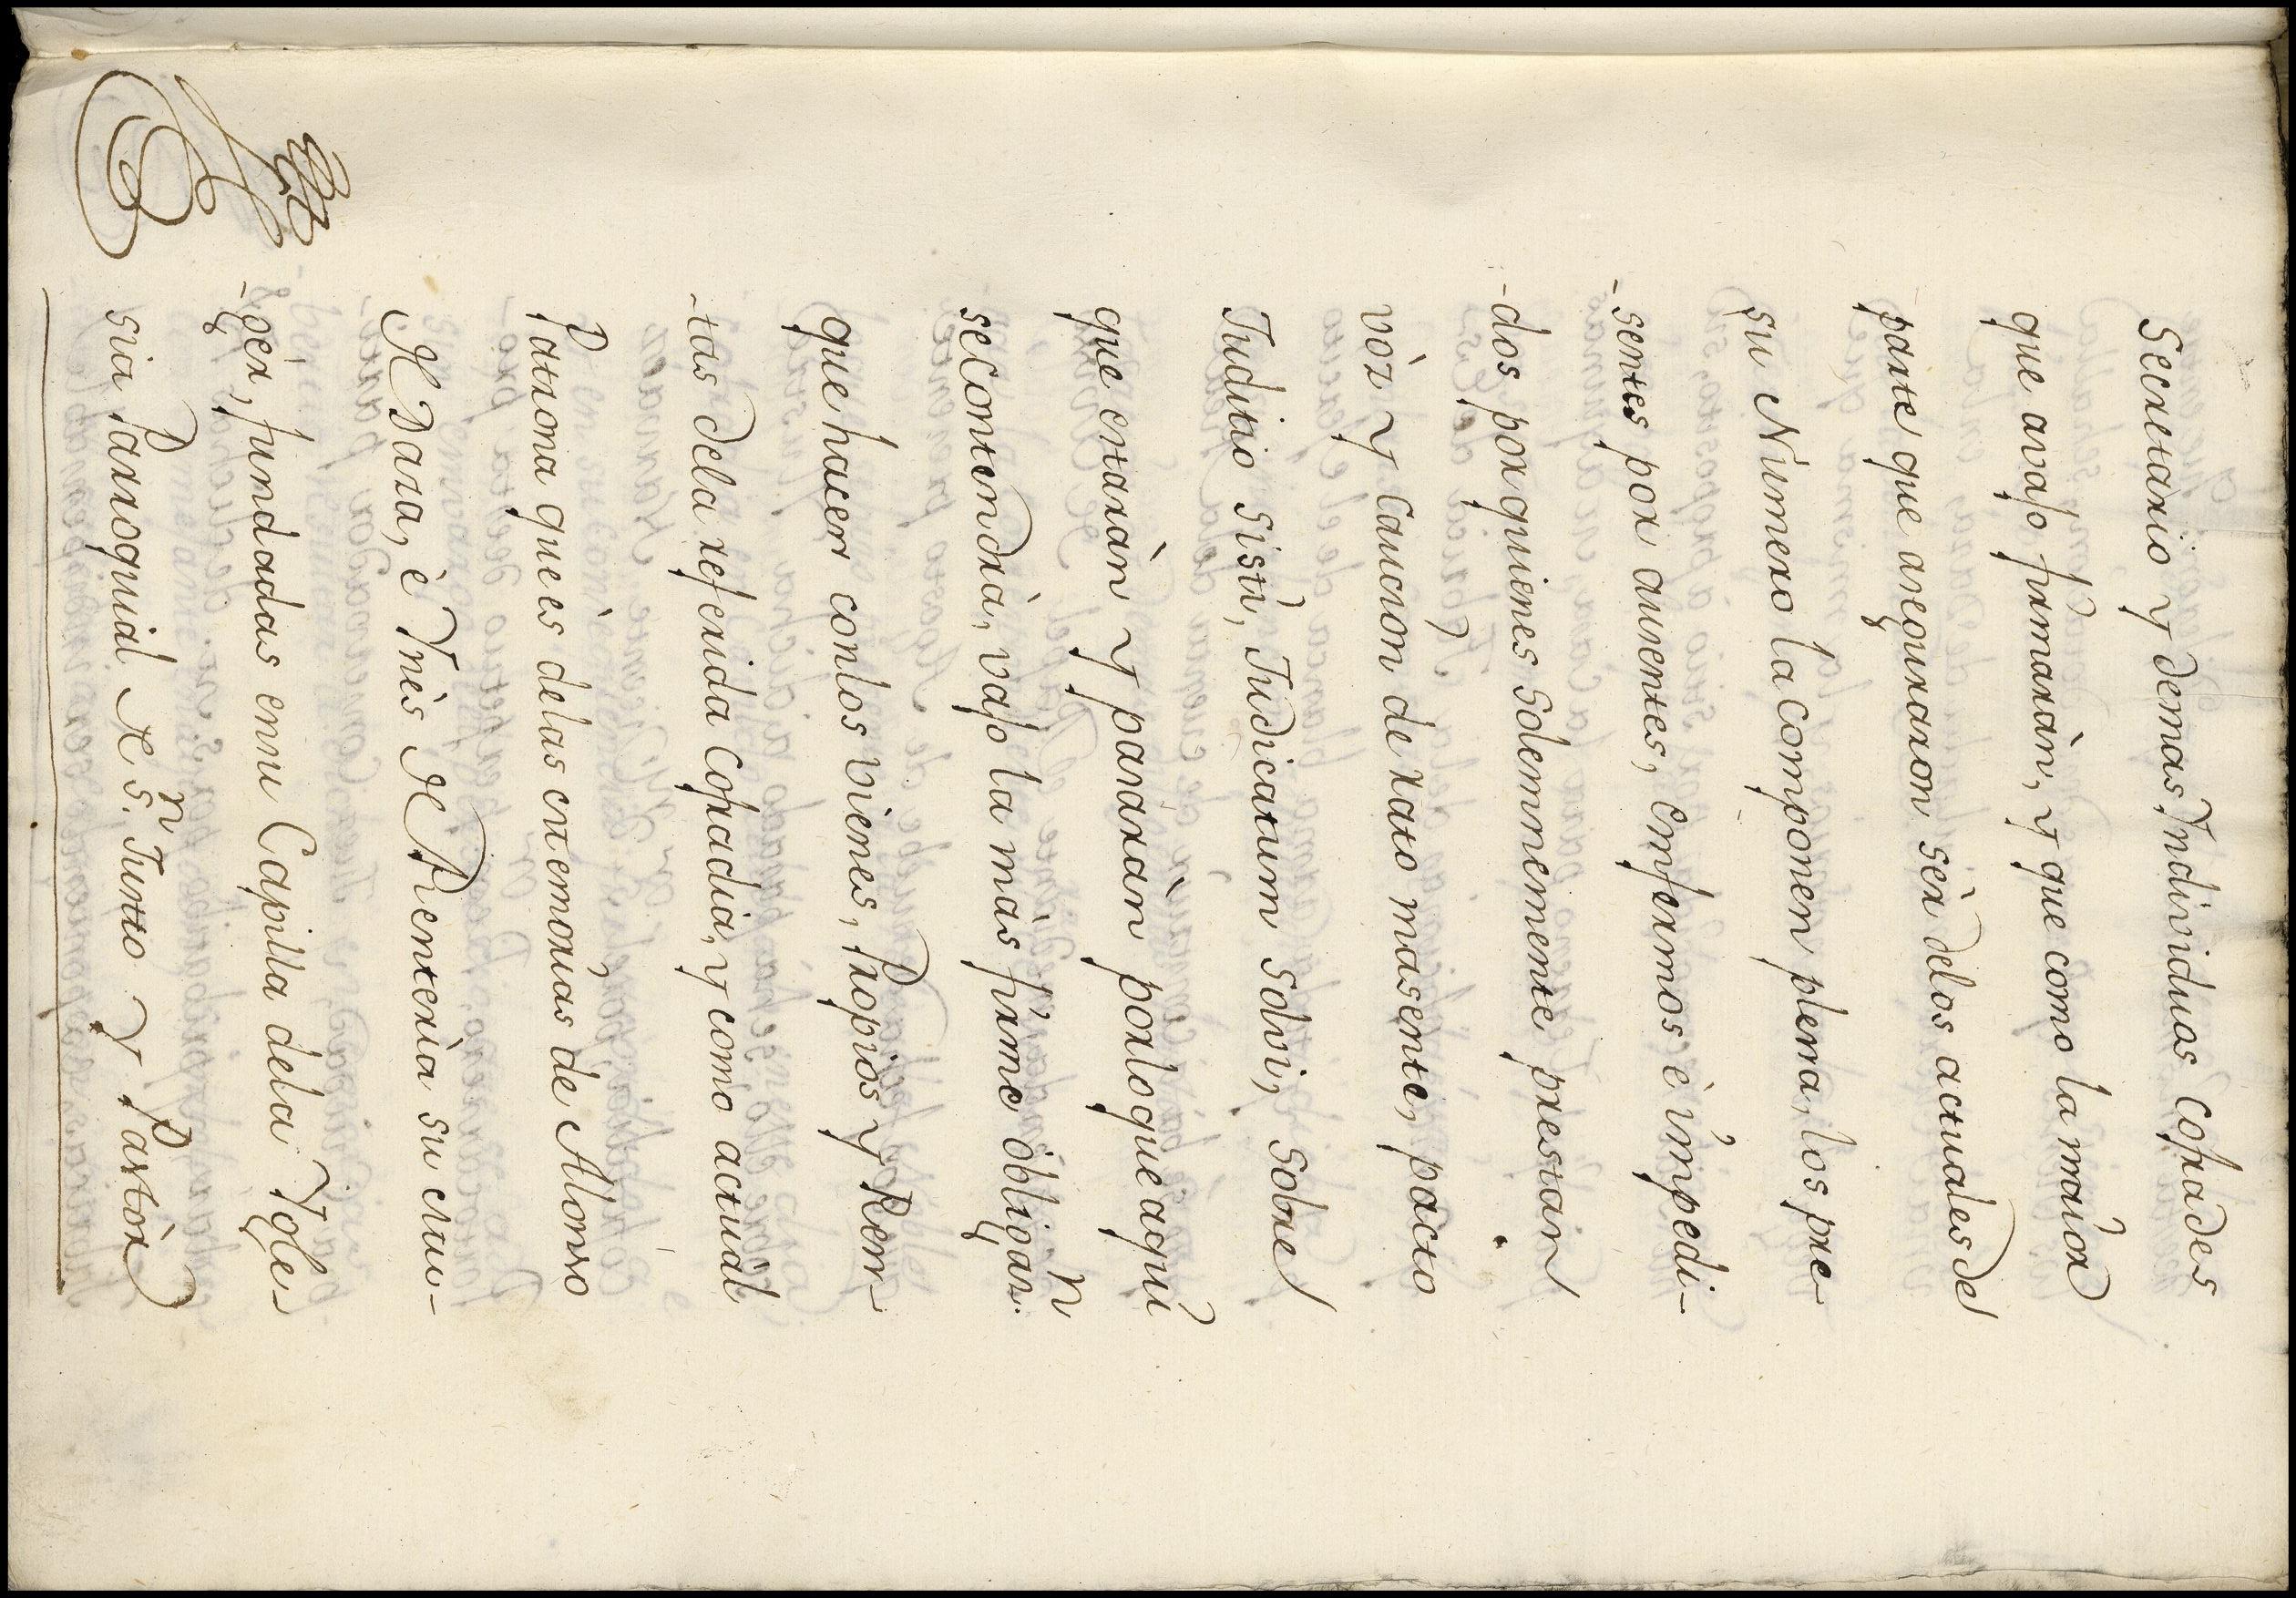 Secretario y demas Yndividuos Cofrades
que avajo firmaràn, y que como la maior
parte que aseguraron sèr delos actuales de
su Numero la Componen plena, los pre-
-sentes por ausentes, enfermos è impedi-
-dos por quienes Solemnemente prestan
vòz y Caucion de rato masente, pacto
Juditio Sisti, Judicatum Solvi, Sobre
que estaràn y pasaràn porloque aqui
seContendrà, vajo la màs firme obligan.n
que hacer conlos vienes, Propios y Ren-
-tas dela referida Cofradia, y como actuàl
Patrona que ès delas cxemorias de Alonso
de Daza, è Ynès de Renteria su mu-
-gèr, fundadas ensu Capilla dela Ygle-
sia Parroquial de S.n Justo y Pastòr